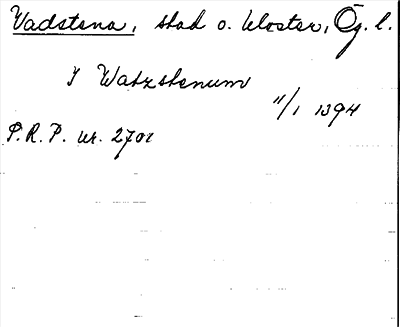 Vadstena, stad o. kloster, Ög. l.
I Watzstenum
11/1 1394
P.R.P. nr. 2702